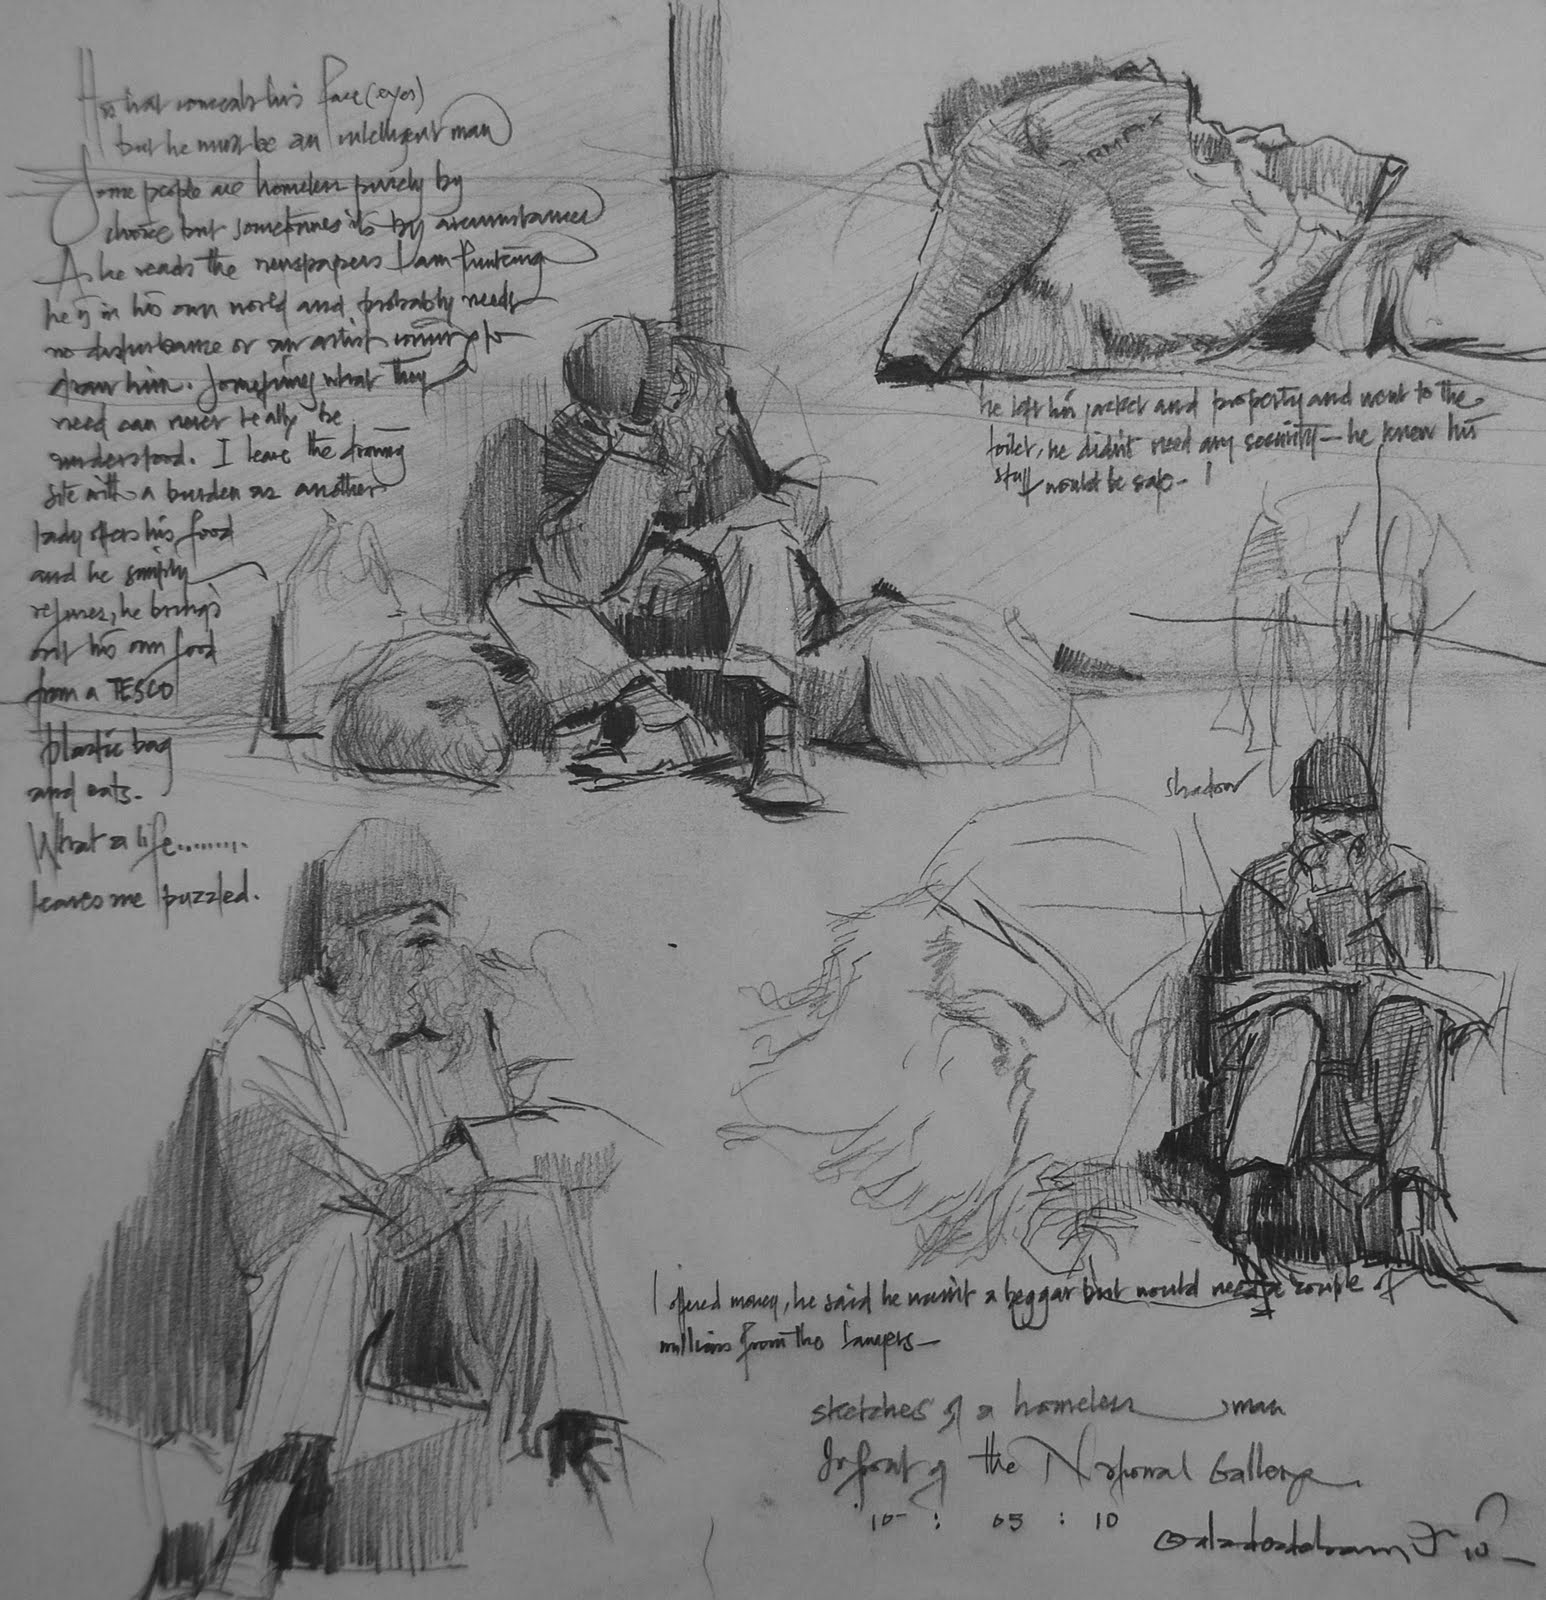 His hat conceals his face (eyes)
but he must be an intelligent man
Some people are homeless purely by
choice but sometimes its by circumstances
As he reads the newspapers I am thinking
he is in his own world and probably needs
no disturbance or an artist trying to
draw him. Sometimes what they
need can never really be
understood. I leave the drawing
site with a burden as another
lady offers his food
and he simply
refuses, he brings
out his own food
from a TESCO
plastic bag
and eats.
What a life.........
leaves me puzzled.
AIRMAX
he left his jacket and property and went to the
toilet, he didn't need any security - he knew his
stuff would be safe - !
shadow
I offered money, he said he wasn't a beggar but would need a couple of
millions from the lawyers -
sketches of a homeless man
In front of the National Gallery
10 : 05 : 10
10